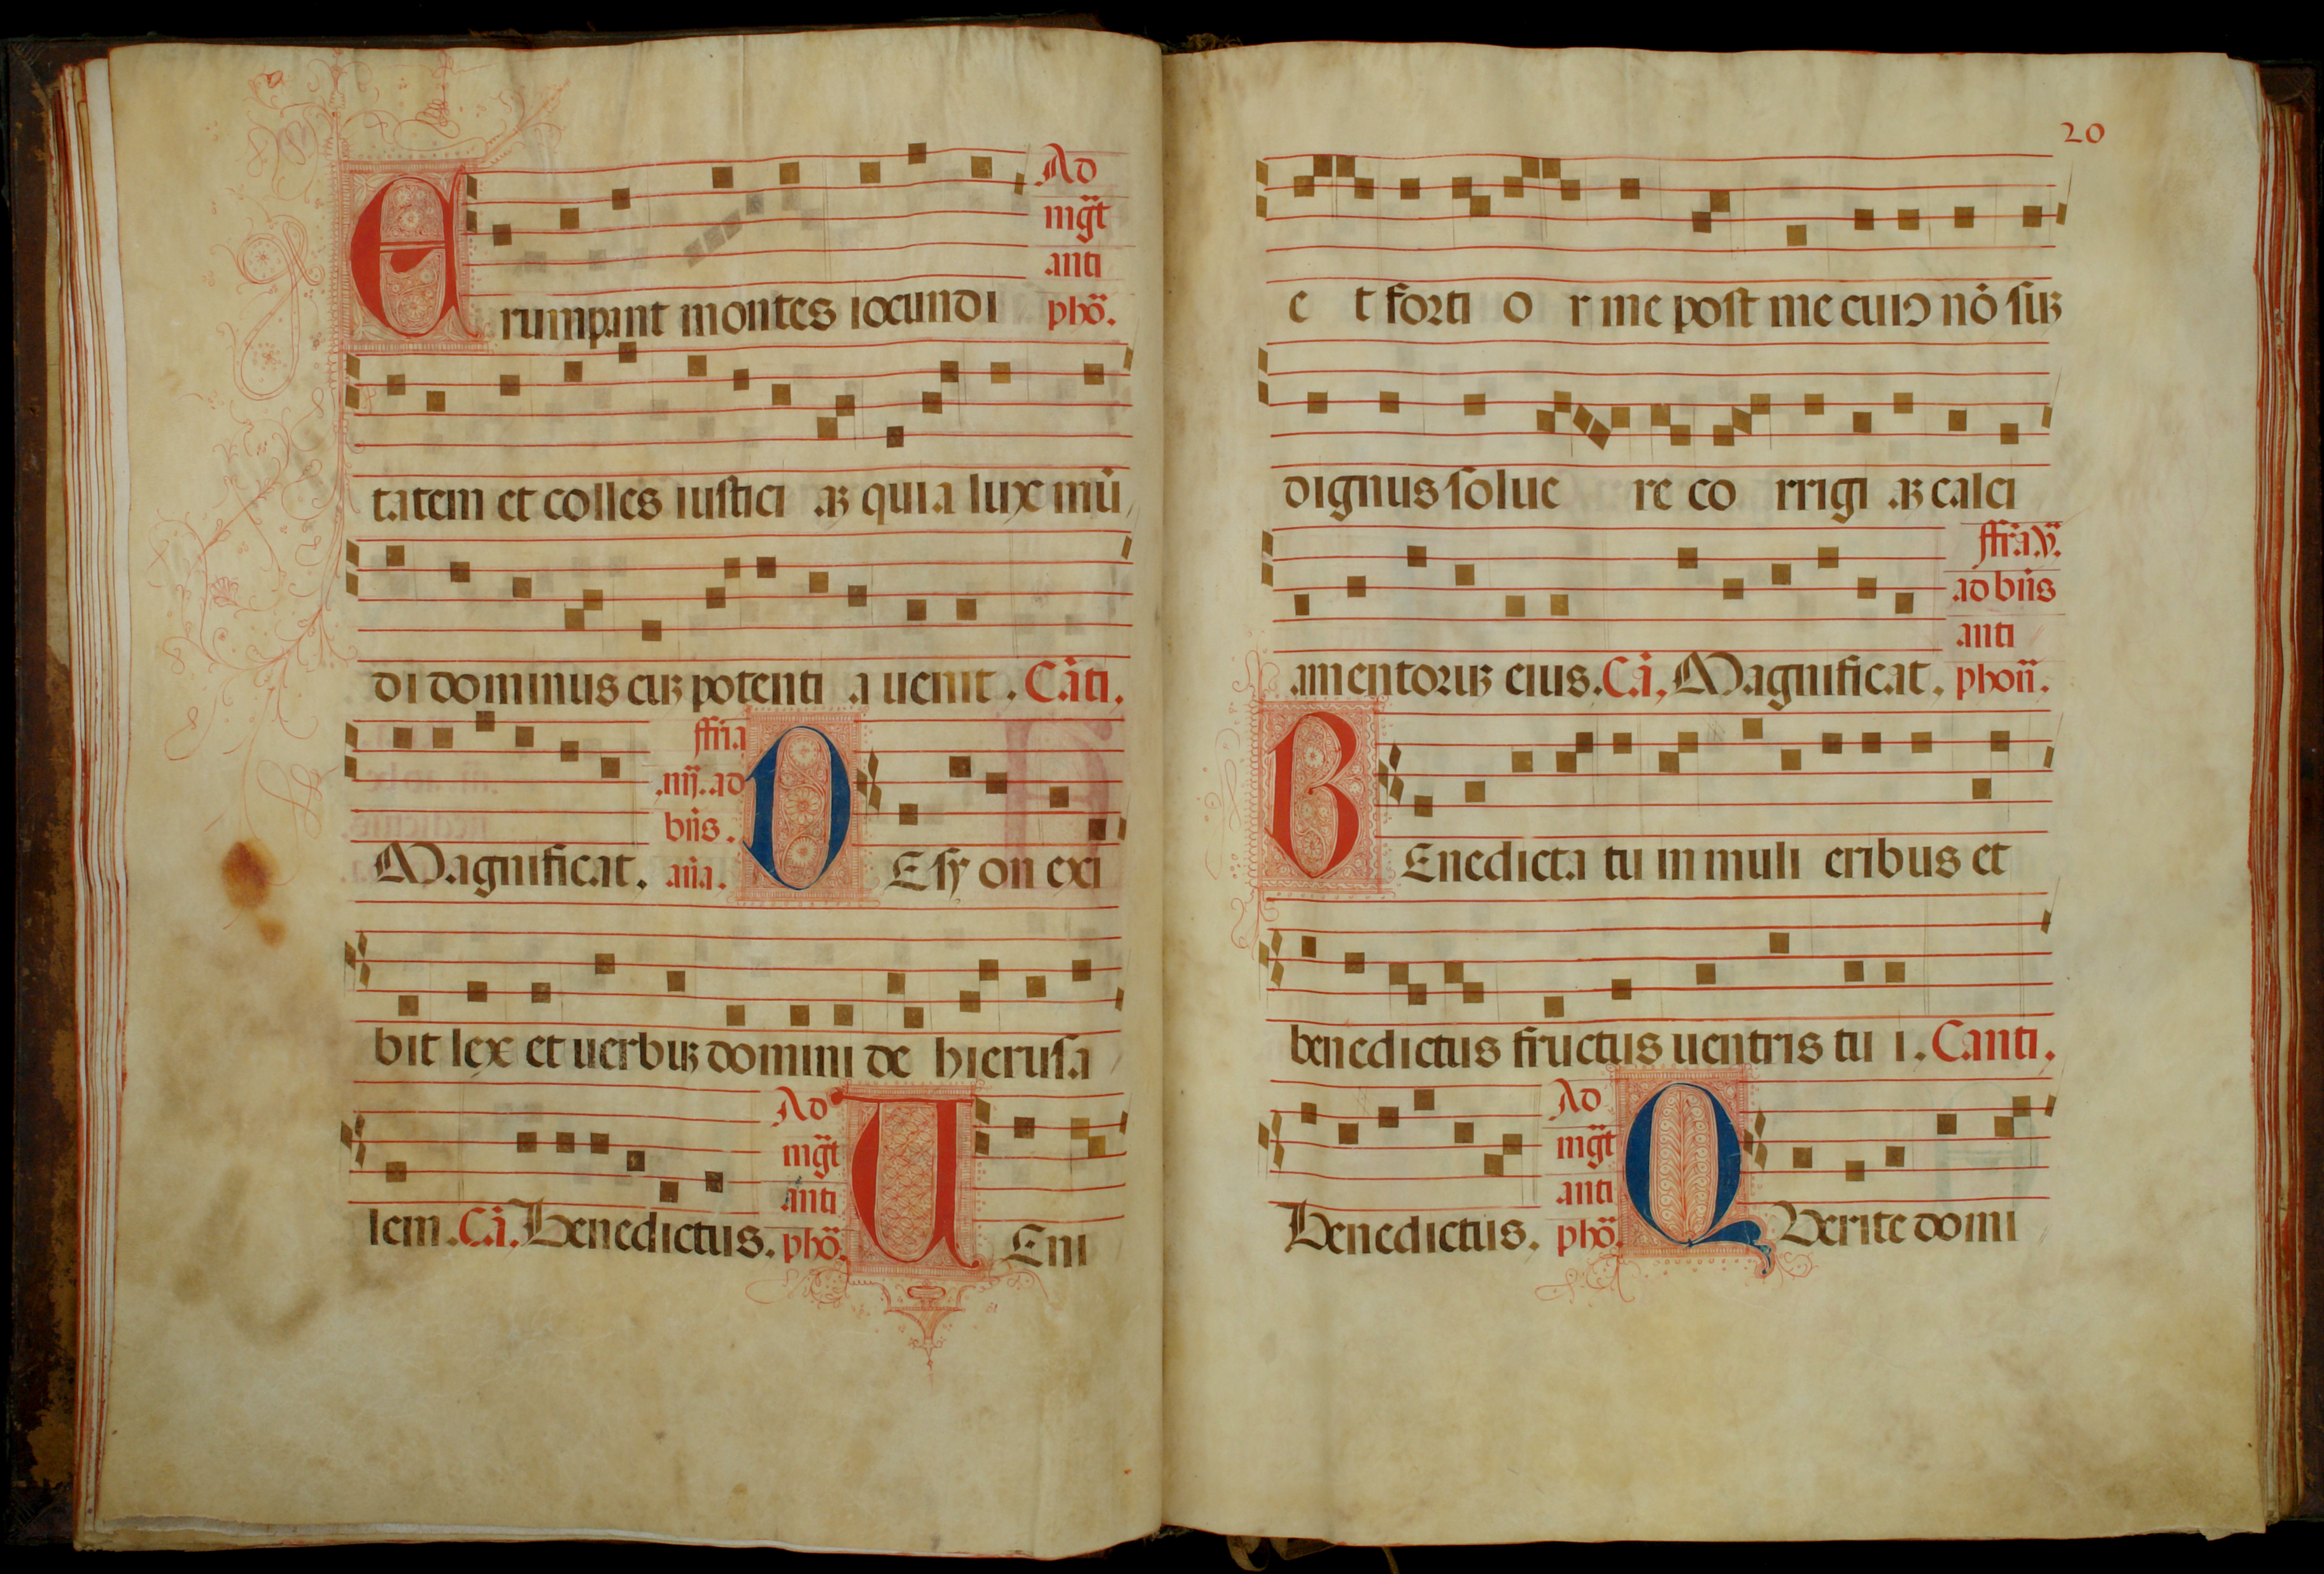 Ad
mgt̄
anti
Erumpant montes iocundi phō.
tatem et colles iusticiaꝫ quia lux mū
di dominus cuꝫ potentia uenit. Cāti.
ffria
.iiij. ad
bn̄s.
Magnificat. an̄a. DE syon exi
bit lex et uerbuꝫ domini de hierusa
Ad
mgt̄
anti
lem. Cā. Benedictus. phō. UEni
20
et fortior me post me cuiꝰ nō suꝫ
dignus soluere corrigiaꝫ calci
ffria.v.
ad bn̄s
anti
amentoruꝫ eius. Cā. Magnificat. phon̄.
BEnedicta tu in mulieribus et
benedictus fructus uentris tui. Canti.
Ad
mgt̄
anti
Benedictus. phō. QUerite domi